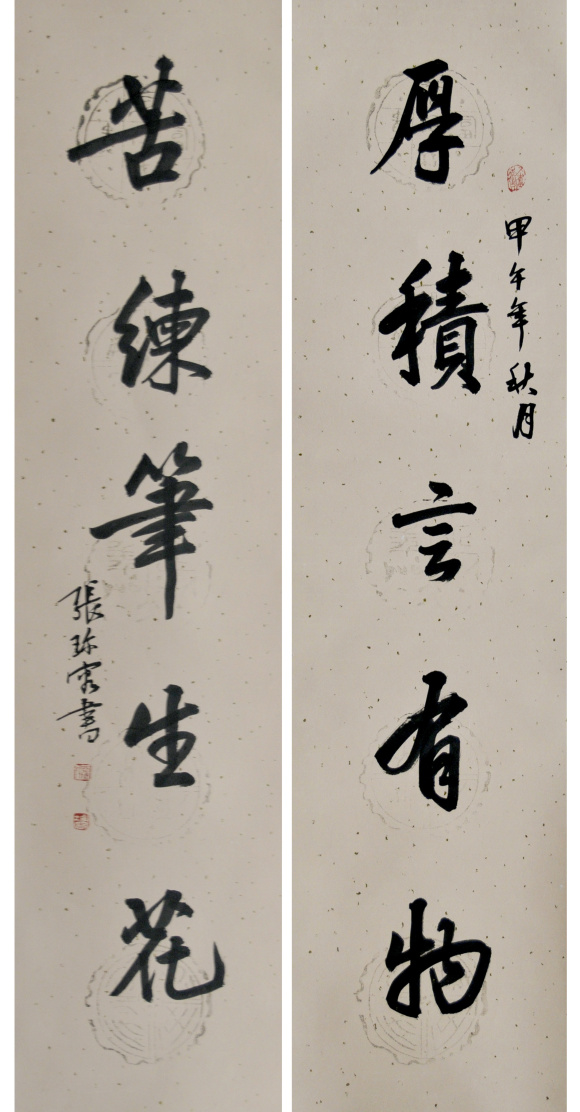 甲午年秋月
厚積言有物
苦練筆生花
張珎宻書